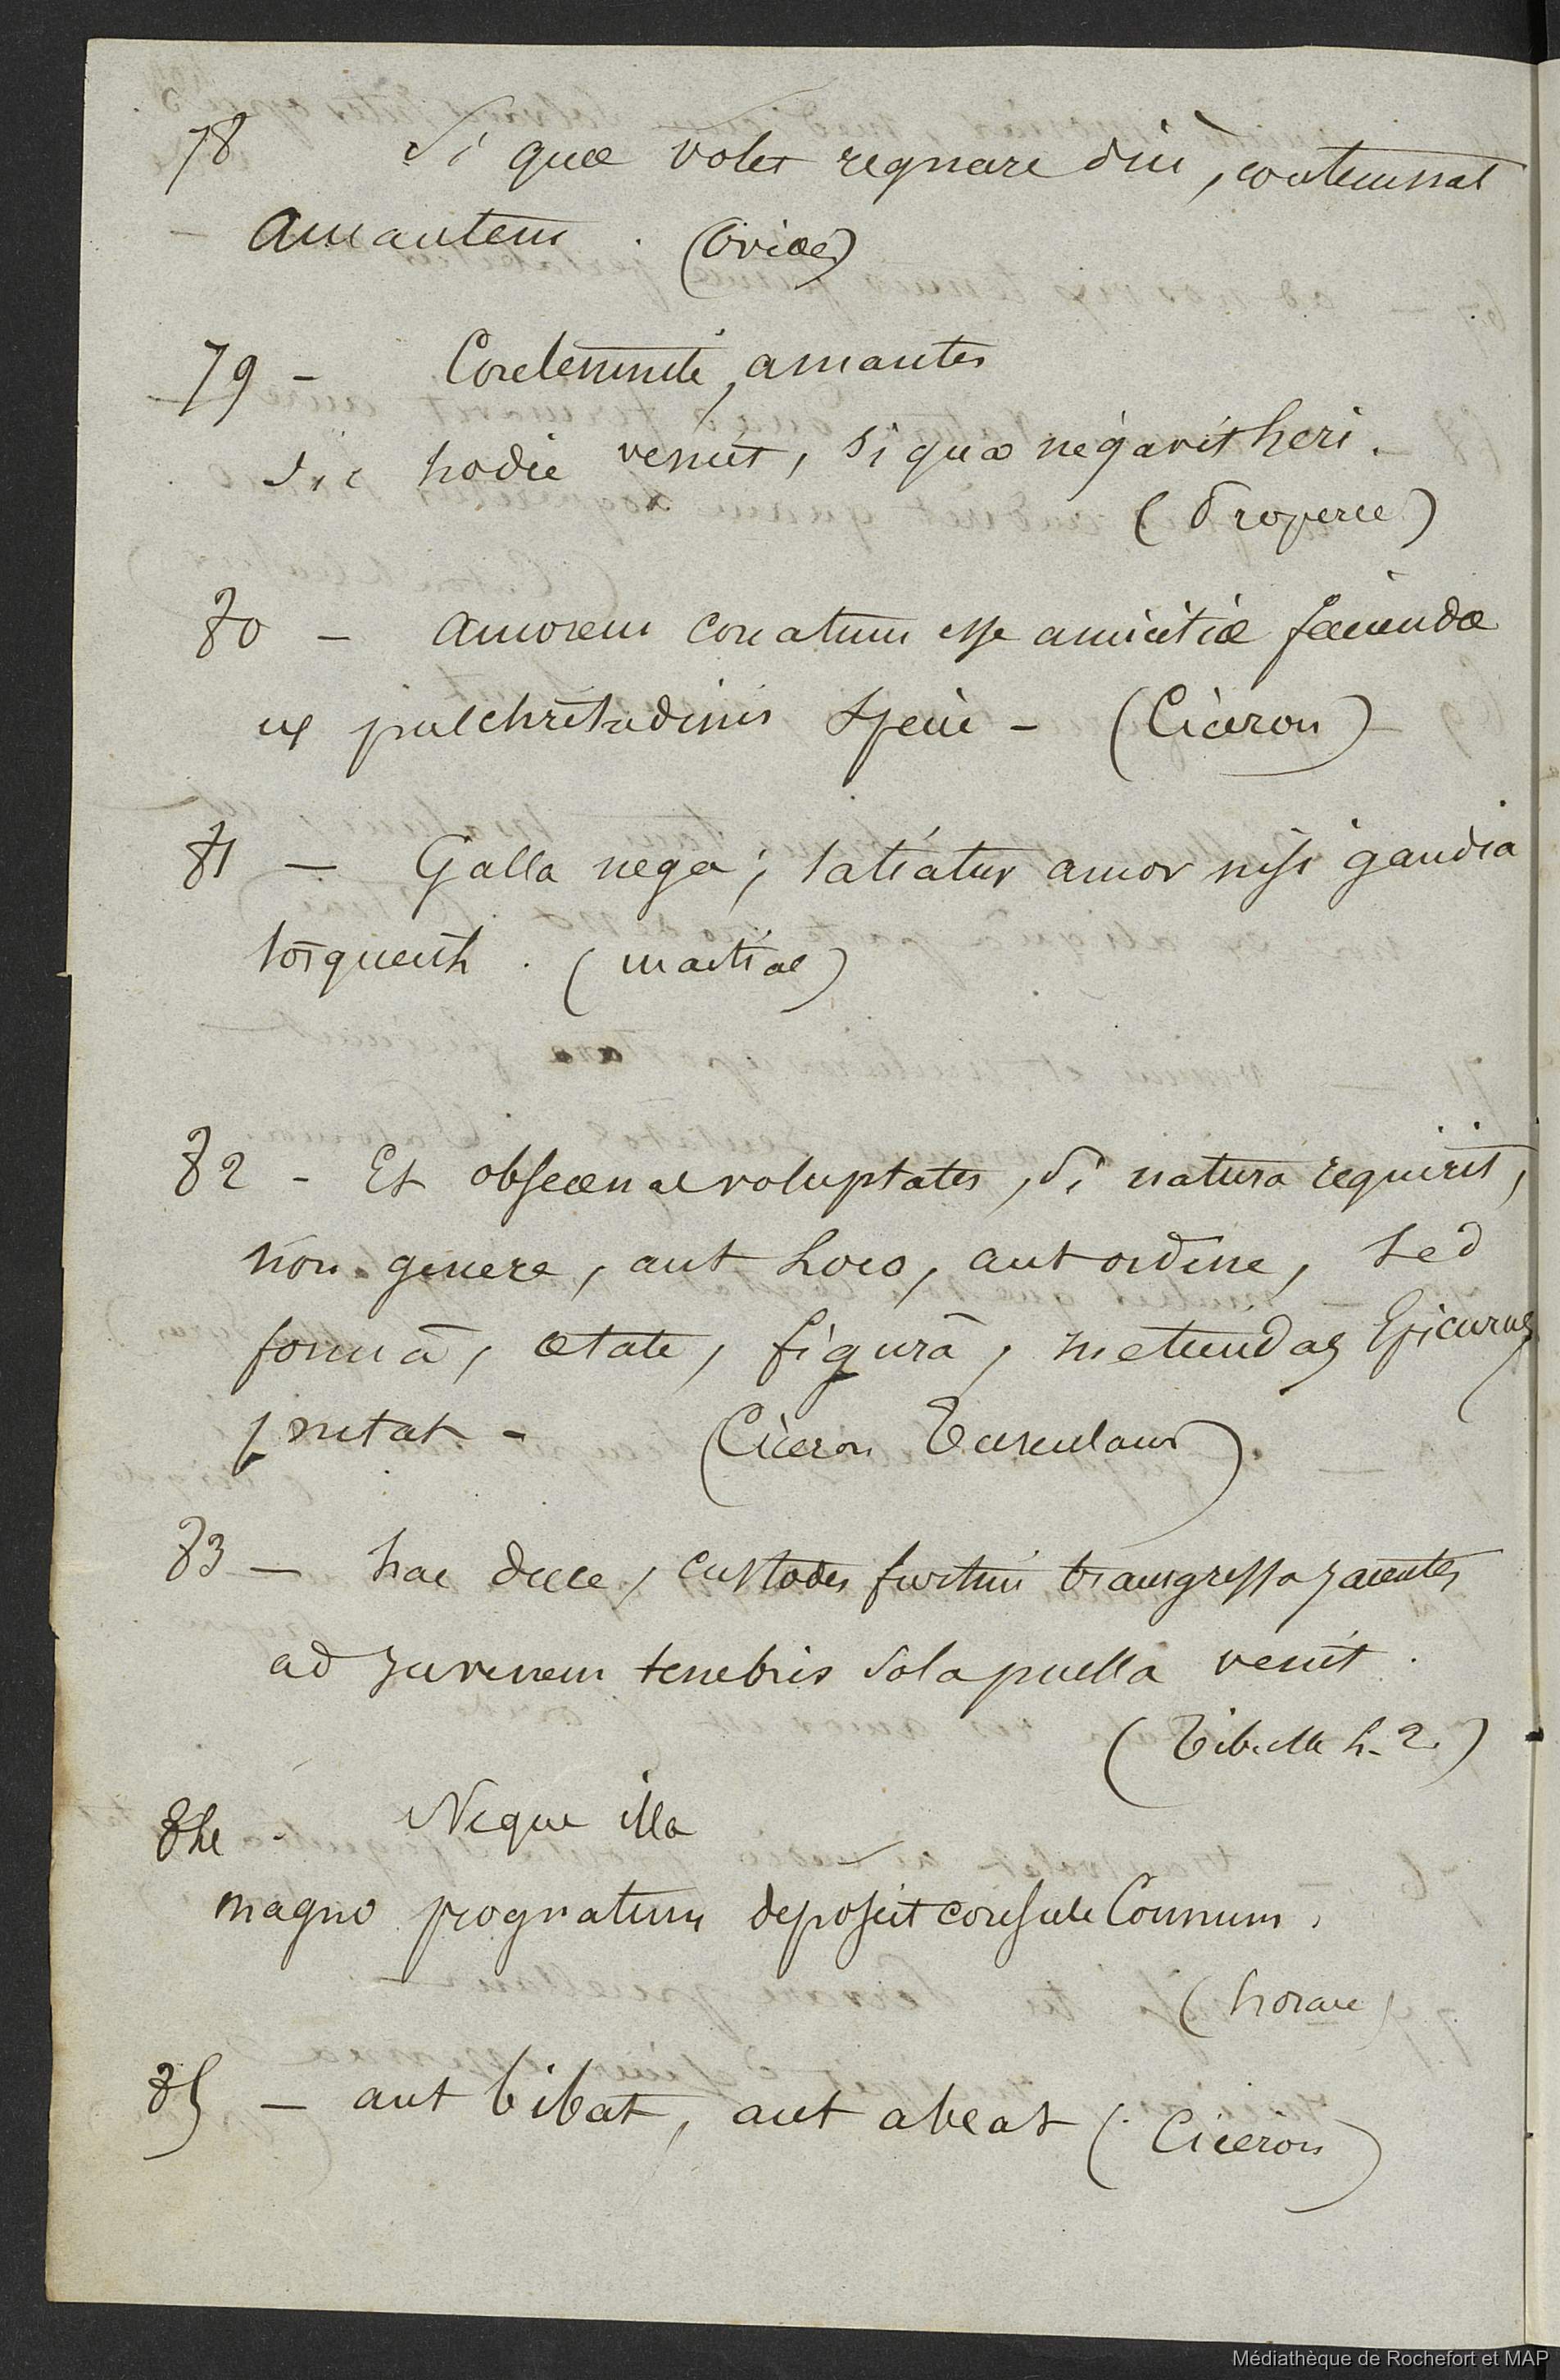 78 Si quæ volet regnare diù, contemnat
- amantem. (Ovide)
79 - Contemnite, amantes
sic hodie veniet, si qua negavit heri.
(Properce)
80 - amorem conatum esse amicitiæ faciendæ
ex pulchritudinis specie - (Cicéron)
81 - Galla nega; satiatur amor nisi gaudia
torquent. (martial)
82 - Et obscœnae voluptates, si natura requirit,
non genere, aut loco, aut ordine, sed
formâ, ætate, figurâ, metiendas Epicurus
putat - (Cicéron Tusculanes)
83 - hac duce, custodes furtim transgressa jacentes
ad juvenem tenebris sola puella venit.
(Tibulle L. 2.)
84 - Neque illa
magno prognatum deposcit consule Connum.
(horace)
85 - aut bibat, aut abeat (Cicéron)
Médiathèque de Rochefort et MAP